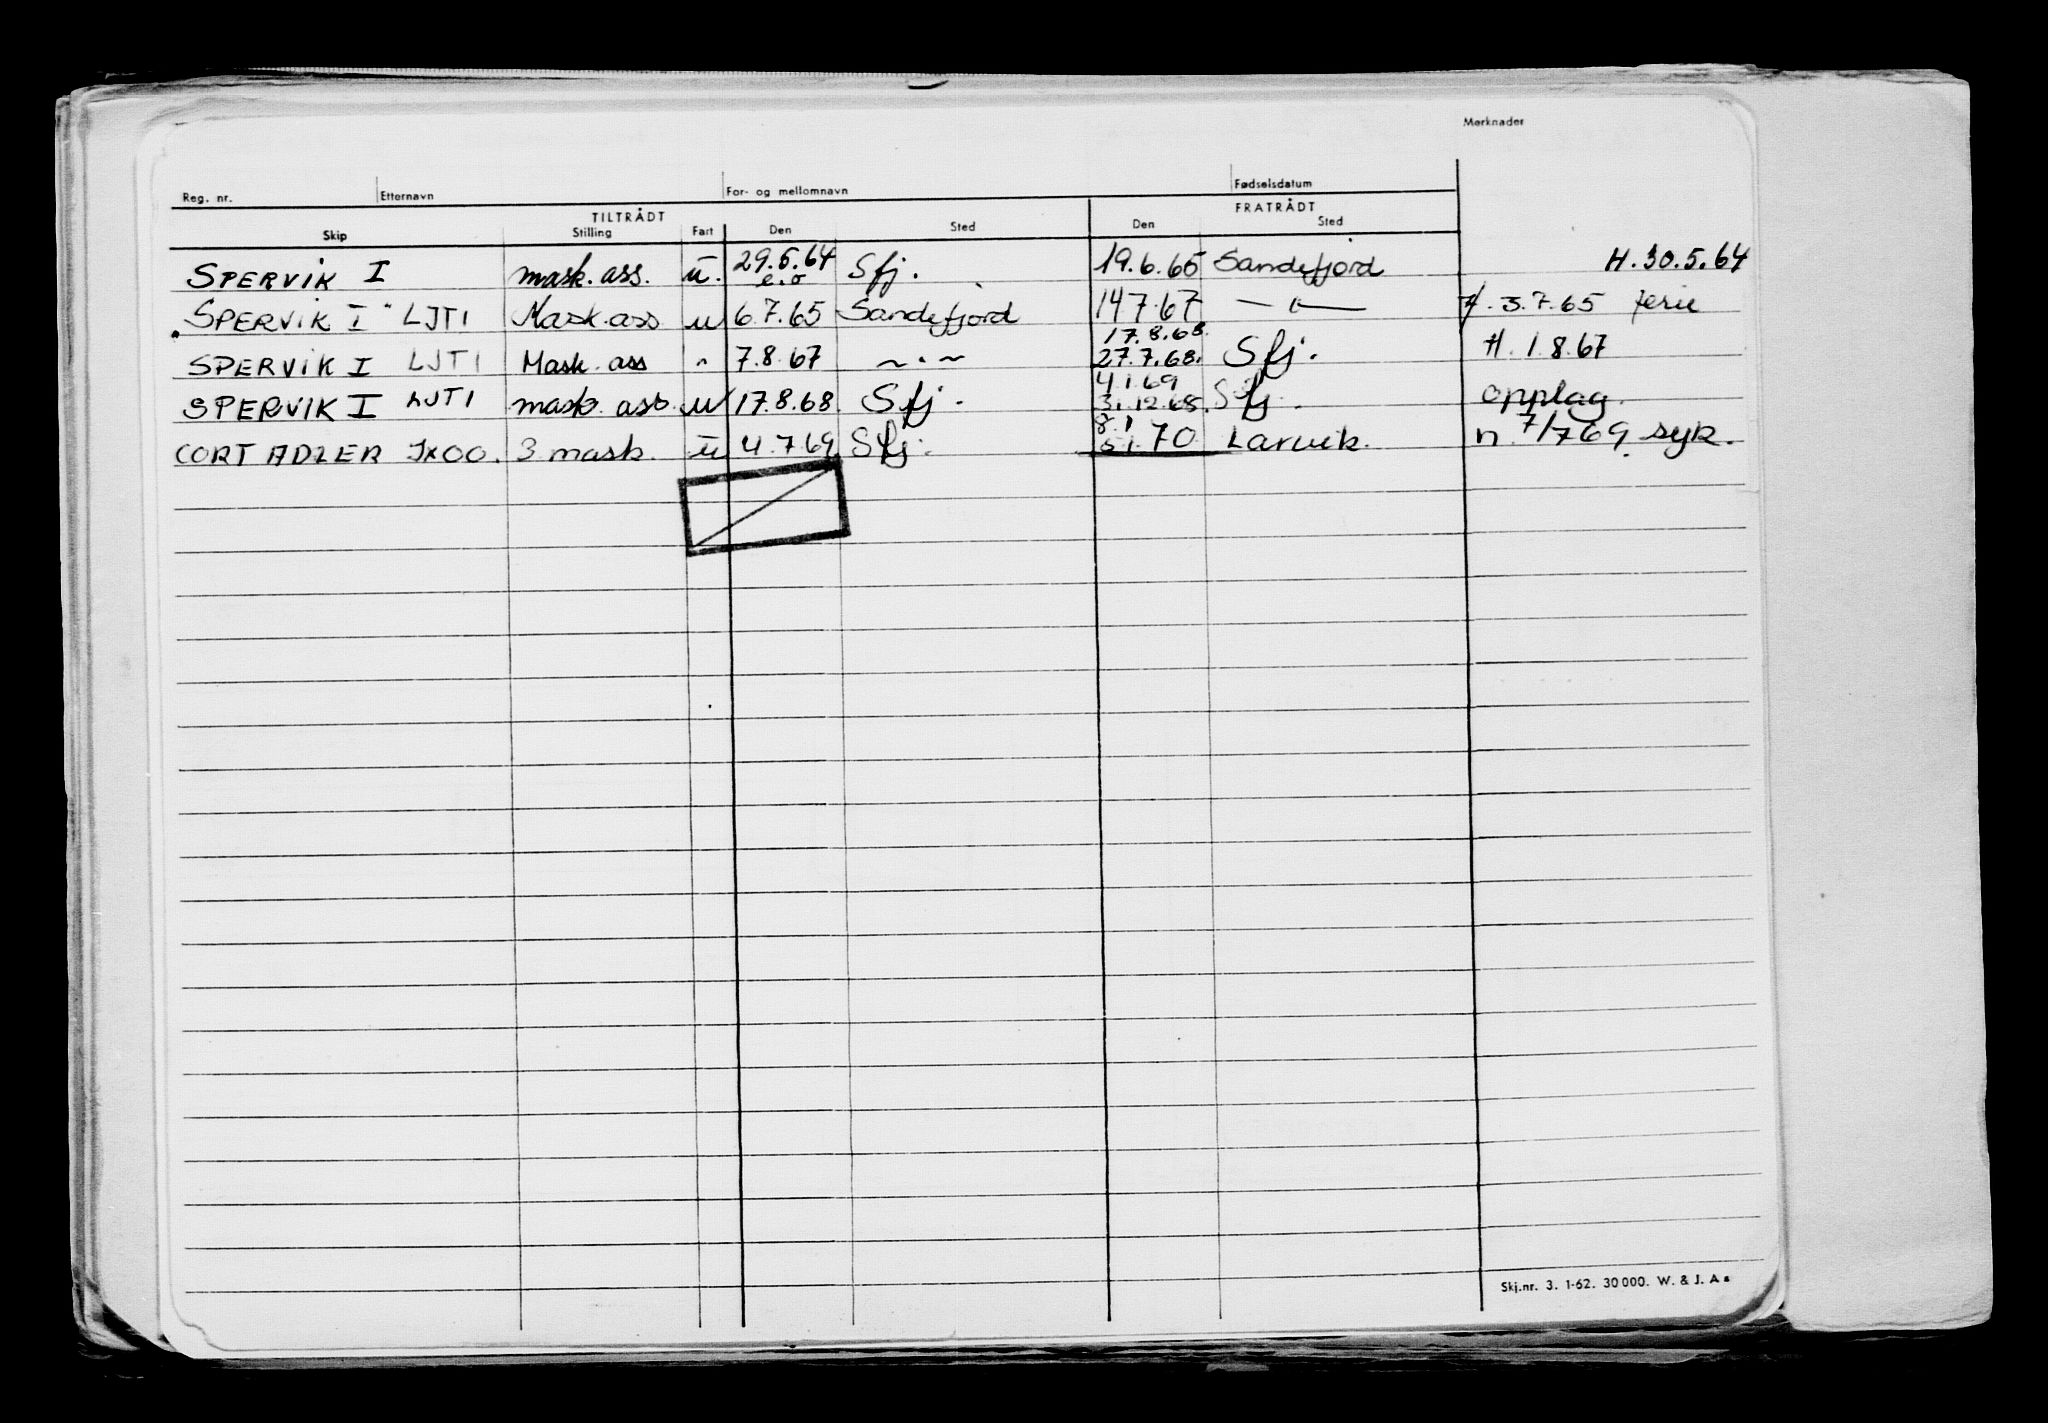 Merknader
Reg. nr. Etternavn For- og mellomnavn Fødselsdatum
TILTRÅDT FRATRÅDT
Skip Stilling Fart Den Sted Den Sted
SPERVIK I mask. ass. u. 29.5.64 e.o Sfj. 19.6.65 Sandefjord H. 30.5.64
SPERVIK I " LJTI Mask. ass u 6.7.65 Sandefjord 14.7.67 — " — H. 3.7.65 ferie
17.8.68.
SPERVIK I LJTI Mask. ass " 7.8.67 ~ " ~ 27.7.68. Sfj. H. 1.8.67
4.1.69
SPERVIK I LJTI mask. ass. u 17.8.68. Sfj. 31.12.68. Sfj. opplag.
8.1
CORT ADLER JXOO. 3 mask. u 4.7.69 Sfj. 5.1.70 Larvik. n. 7/769. syk.
Skj.nr. 3. 1-62. 30 000. W. & J. A s